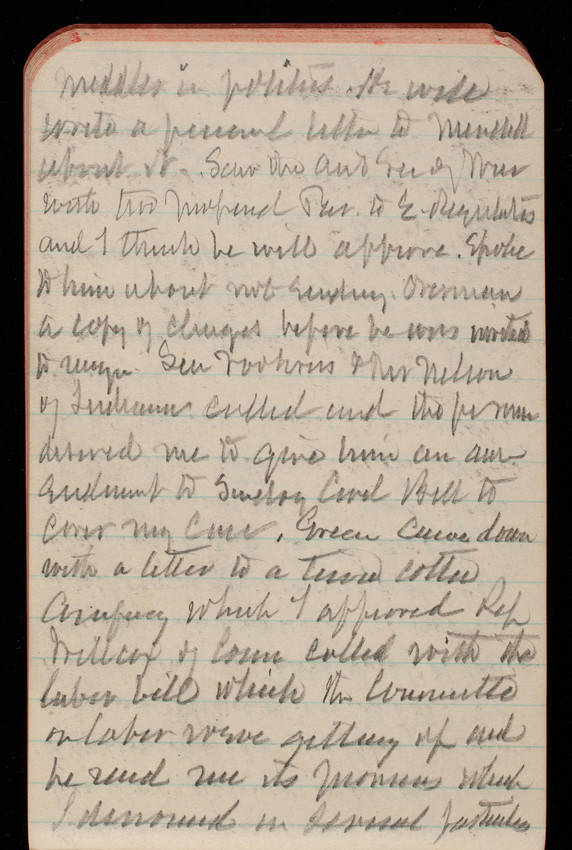 meddler in politics. He will
write a personal letter to Mendell
about it. Saw the act Sec of War
with two proposed Rev. to E. Regulations
and I think he will approve. Spoke
to him about not sending Overman
a copy of charges before he was invited
to resign. Sen Voorhees & Rev Nelson
of Indiana called and the former
desired me to give him an am-
endment to Sundry Civil Bill to
cover my case. Green came down
with a letter to a Texas cattle
Company which I approved Rep
Willcox of Conn called with the
labor bill which the Committee
on labor were getting up and
he read me its provisions which
I denounced in several particulars